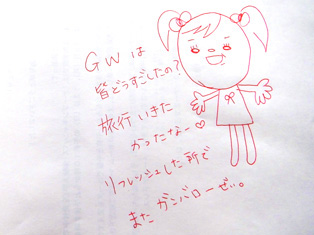 GWは
皆どうすごしたの?
旅行いきた
かったなー♡
リフレッシュした所で
またガンバローぜぃ。